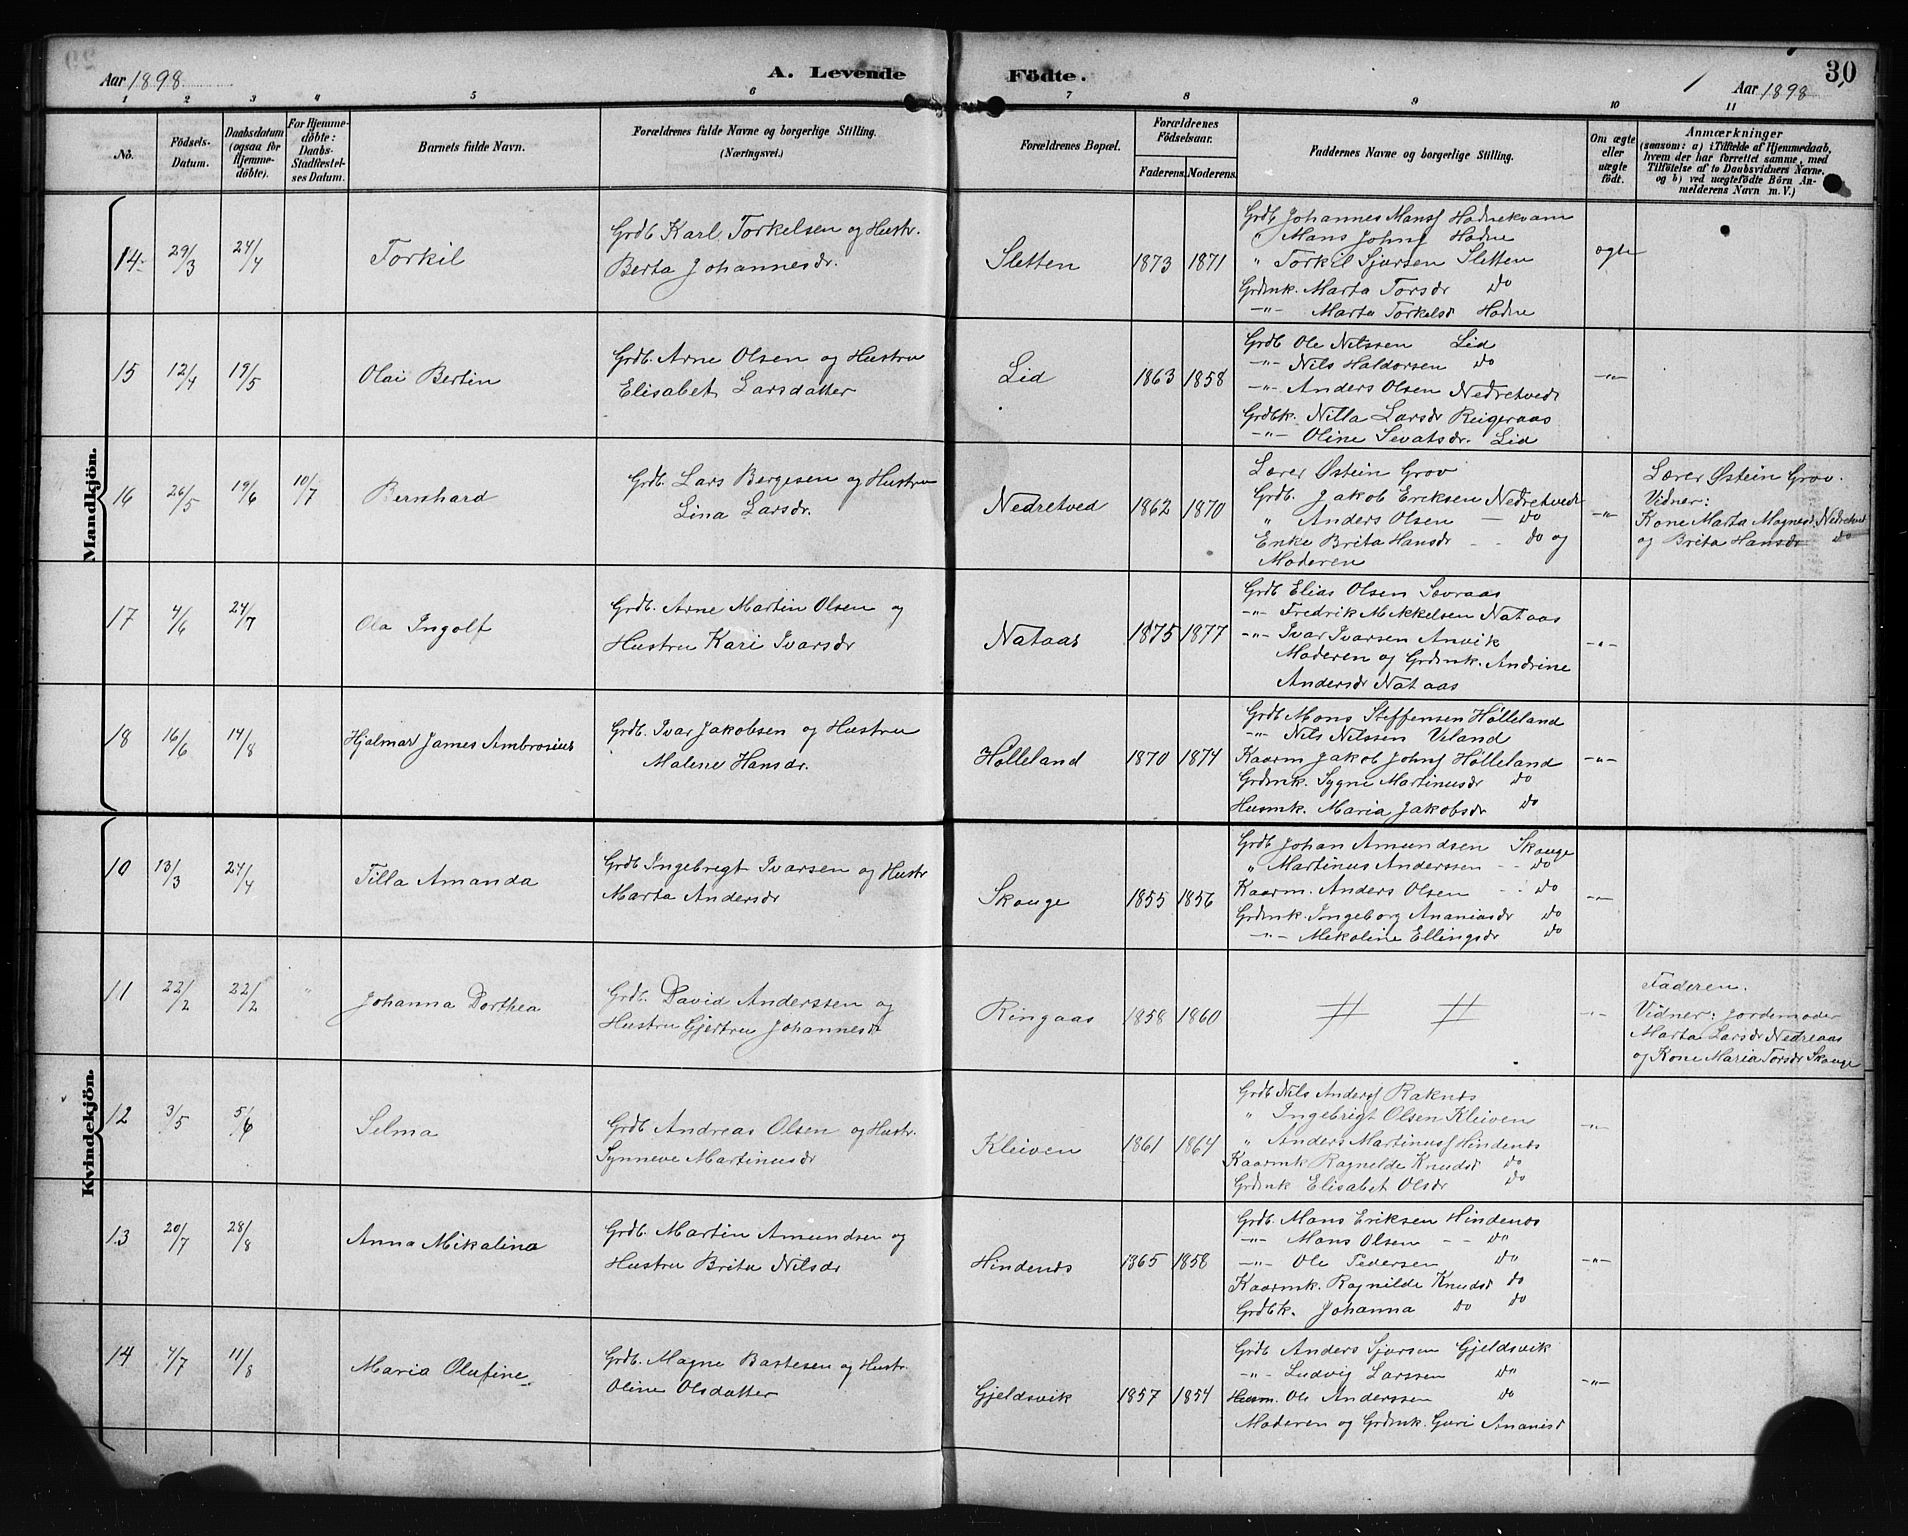 Aar 1898
A. Levende
Födte.
Aar 1898
30
1 2 3 4 5 6 7 8 9 10 11
No.
Födsels-Datum.
Daabsdatum (ogsaa for Hjemmedöbte).
For Hjemmedöbte: Daabs-Stadfæstelses Datum.
Barnets fulde Navn.
Forældrenes fulde Navne og borgerlige Stilling. (Næringsvei.)
Forældrenes Bopæl.
Forældrenes Födselsaar.
Faderens. Moderens.
Faddernes Navne og borgerlige Stilling.
Om ægte eller uægte födt.
Anmærkninger
(saasom: a) i Tilfælde af Hjemmedaab, hvem der har forrettet samme, med Tilföielse af to Daabsvidners Navne. og b) ved uægtefödte Börn Anmelderens Navn m. V.)
Mandkjön.
14 29/3 24/4 Torkil
Grdb. Karl Torkelsen og Hustr.
Berta Johannesdr.
Sletten 1873 1871
Grdb Johannes Manss Hodnekvam
" Mans Johns Hodne
" Torkil Sjursen Sletten
Grdmk. Marta Torsdr Do
-"- Marta Torkelsd Hodne
ægte
15 12/4 19/5 Olai Bertin
Grdb. Arne Olsen og Hustru
Elisabet Larsdatter
Lid 1863 1858
Grdb Ole Nilssen Lid
-"- Nils Haldorsen Do
-"- Anders Olsen Nedretvedt
Grdbk. Nilla Larsdr Reigeraas
-"- Oline Sevatsdr. Lid
-"-
16 26/5 19/6 10/7 Bernhard
Grdb. Lars Bergesen og Hustru
Lina Larsdr.
Nedretved 1862 1870
Lærer Østein Grov
Grdb. Jakob Eriksen Nedretvedt
" Anders Olsen - Do
Enke Brita Hansdr - - Do og
Moderen
-"-
Lærer Østein Grov.
Vidner:
Kone Marta Magnesd. Nedretved
og Brita Hansdr Do
17 4/6 24/7 Ola Ingolf
Grdb. Arne Martin Olsen og
Hustru Kari Ivarsdr
Nataas 1875 1877
Grdb Elias Olsen Sævraas
-"- Fredrik Mikkelsen Nataas
-"- Ivar Ivarsen Anvik
Moderen og Grdmk. Andrine
Andersdr Nataas
-"-
18 16/6 14/8 Hjalmar James Ambrosius
Grdb. Ivar Jakobsen og Hustru
Malene Hansdr.
Hølleland 1870 1874
Grdb Mons Steffensen Hølleland
-"- Nils Nilssen Veland
Kaarm Jakob Johns Hølleland
Grdmk. Sygne Martinusdr Do
Husmk. Maria Jakobsdr Do
-"-
Kvindekjön.
10 13/3 24/4 Tilla Amanda
Grdb. Ingebrigt Ivarsen og Hustr
Marta Andersdr
Skauge 1855 1856
Grdb Johan Amundsen Skauge
" Martinus Anderssen - - Do
Kaarm. Anders Olsen - - Do
Grdmk. Ingeborg Ananiasdr Do
-"- Mikaline Ellingsdr Do
-"-
11 22/2 22/2 " Johanna Dorthea
Grdb. David Anderssen og
Hustru Gjertru Johannesdr
Ringaas 1858 1860
-"-
Faderen.
Vidner: Jordemoder
Marta Larsdr Nedreaas
og Kone Maria Torsdr Skauge
12 3/5 5/6 Selma
Grdb Andreas Olsen og Hustr.
Synneve Martinusdr
Kleiven 1861 1864
Grdb Nils Anderss Raknes
" Ingebrigt Olsen Kleiven
" Anders Martinuss Hindenes
Kaarmk Ragnelde Knudsd Do
Grdmk Elisabet Olsdr Do
-"-
13 20/7 28/8 Anna Mikalina
Grdb. Martin Amundsen og
Hustru Brita Nilsdr
Hindenes 1865 1858
Grdb. Mans Eriksen Hindenes
-"- Mons Olsen - - Do
-"- Ole Pedersen Do
Kaarmk. Ragnilde Knudsd Do
Grdbk. Johanna Do Do
-"-
14 4/7 11/8 Maria Olufine
Grdb. Magne Bastesen og Hustr.
Oline Olsdatter
Gjeldsvik 1857 1854
Grdb Anders Sjursen Gjeldsvik
-"- Ludvig Larssen Do
Husm. Ole Anderssen Do
Moderen og Grdmk. Guri Ananisd
-"-